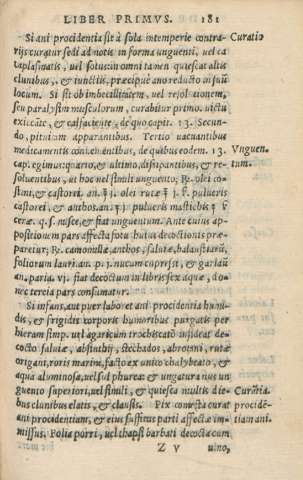 LIBER PRIMVS. 181
Si ani procidentia sit à sola intemperie contra- Curatio
rijs curatur sedi admotis in forma unguenti, uel ca
taplasmatis, uel fotus: in omni tamen quiescat altis
clunibus, & iunctis, præcipuè ano reducto in suũ
locum. Si sit ob imbecillitatem, uel resolutionem,
seu paralysim musculorum, curabitur primo. uictu
exiccãte, & calfaciente, de quo capit. 13. Secun-
do, pituitam apparantibus. Tertio uacuantibus
medicamentis conuenientibus, de quibus eodem. 13. Vnguen-
cap. egimus: quarto, & ultimo, dissipantibus, & re- tum.
soluentibus, ut hoc uel simili unguento; ℞. olei co-
stini, & castorei. an. ʒ j. olei rutæ ʒ j. ß. pulueris
castorei, & anthos. an. ʒ j. pulueris mastichis ʒ ß
ceræ. q. s. misce, & fiat unguentum. Ante cuius ap-
positionem pars affecta fotu huius decoctionis præ-
paretur; ℞. camomillæ, anthos, saluiæ, balaustiorũ,
foliorum lauri. an. p. j. nucum cupressi, & gariaũ
an. paria. vj. fiat decoctum in libris sex aquæ, do-
nec tercia pars consumatur.
Si infans, aut puer labore et ani procidentia humi-
dis, & frigidis corporis humoribus purgatis per
hieram simp. uel agaricum trochiscatũ insideat de-
cocto saluiæ, absinthij, stechados, abrotani, rutæ
origani, roris marini, facto ex unico chalybeato, &
aqua aluminosa, uel sulphurea: & ungatur anus un
guento superiori, uel simili, & quiescat multis die- Curatia.
bus clunibus elatis, & clausis. Pix comesta curat procidē-
ani procidentiam, & eius suffitus parti affectæ im- tiam ani.
missus. Folia porri, uel thapsi barbati decocta cum
Z v uino,